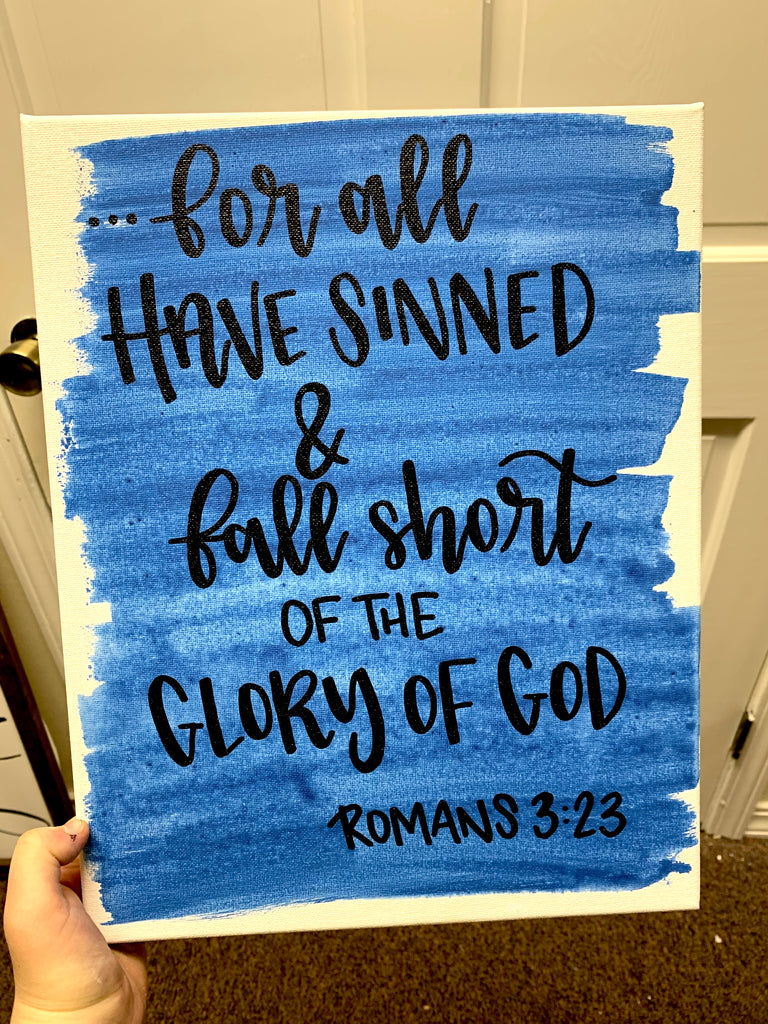 ...for all
HAVE SINNED
&
fall short
OF THE
GLORY OF GOD
ROMANS 3:23